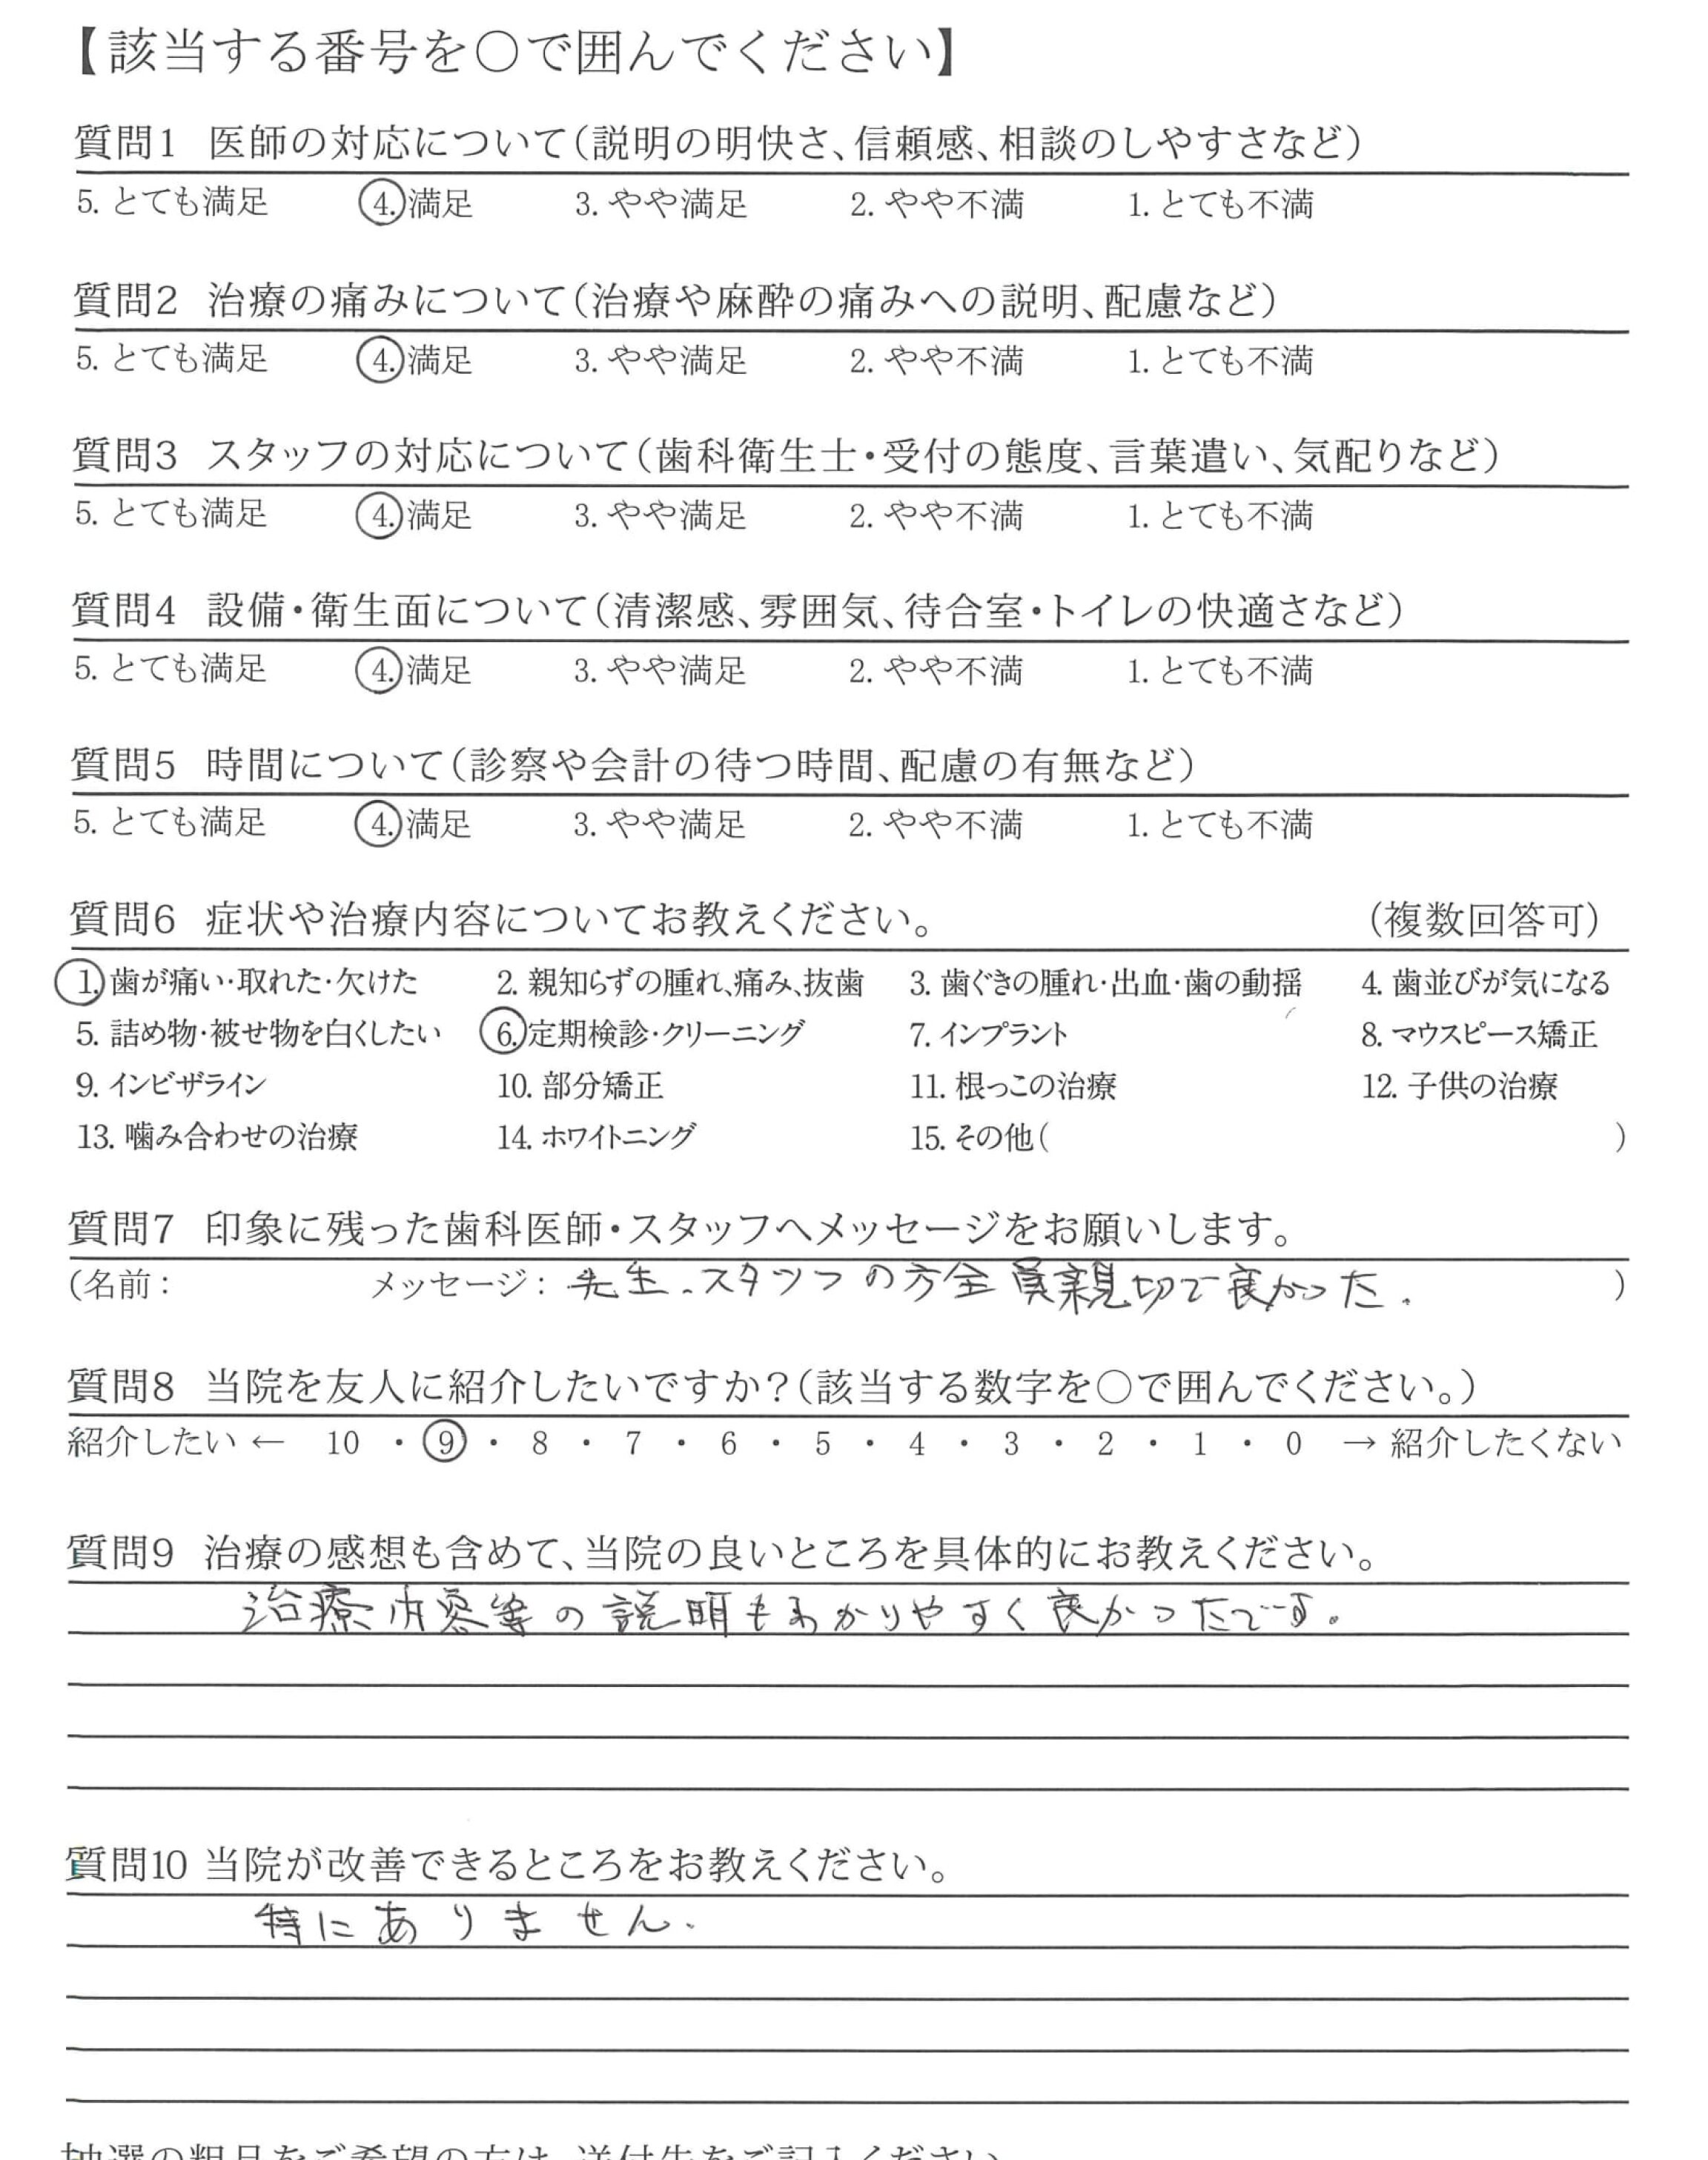 【該当する番号を○で囲んでください】
質問1 医師の対応について(説明の明快さ、信頼感、相談のしやすさなど)
5. とても満足 4. 満足 3. やや満足 2. やや不満 1. とても不満
質問2 治療の痛みについて(治療や麻酔の痛みへの説明、配慮など)
5. とても満足 4. 満足 3. やや満足 2. やや不満 1. とても不満
質問3 スタッフの対応について(歯科衛生士・受付の態度、言葉遣い、気配りなど)
5. とても満足 4. 満足 3. やや満足 2. やや不満 1. とても不満
質問4 設備・衛生面について(清潔感、雰囲気、待合室・トイレの快適さなど)
5. とても満足 4. 満足 3. やや満足 2. やや不満 1. とても不満
質問5 時間について(診察や会計の待つ時間、配慮の有無など)
5. とても満足 4. 満足 3. やや満足 2. やや不満 1. とても不満
質問6 症状や治療内容についてお教えください。 (複数回答可)
1. 歯が痛い・取れた・欠けた 2. 親知らずの腫れ、痛み、抜歯 3. 歯ぐきの腫れ・出血・歯の動揺 4. 歯並びが気になる
5. 詰め物・被せ物を白くしたい 6. 定期検診・クリーニング 7. インプラント 8. マウスピース矯正
9. インビザライン 10. 部分矯正 11. 根っこの治療 12. 子供の治療
13. 噛み合わせの治療 14. ホワイトニング 15. その他( )
質問7 印象に残った歯科医師・スタッフへメッセージをお願いします。
(名前: メッセージ: 先生、スタッフの方全員親切で良かった。 )
質問8 当院を友人に紹介したいですか?(該当する数字を○で囲んでください。)
紹介したい ← 10 ・ 9 ・ 8 ・ 7 ・ 6 ・ 5 ・ 4 ・ 3 ・ 2 ・ 1 ・ 0 → 紹介したくない
質問9 治療の感想も含めて、当院の良いところを具体的にお教えください。
治療内容等の説明もわかりやすく良かったです。
質問10 当院が改善できるところをお教えください。
特にありません。
抽選の粗品をご希望の方は、送付先をご記入ください